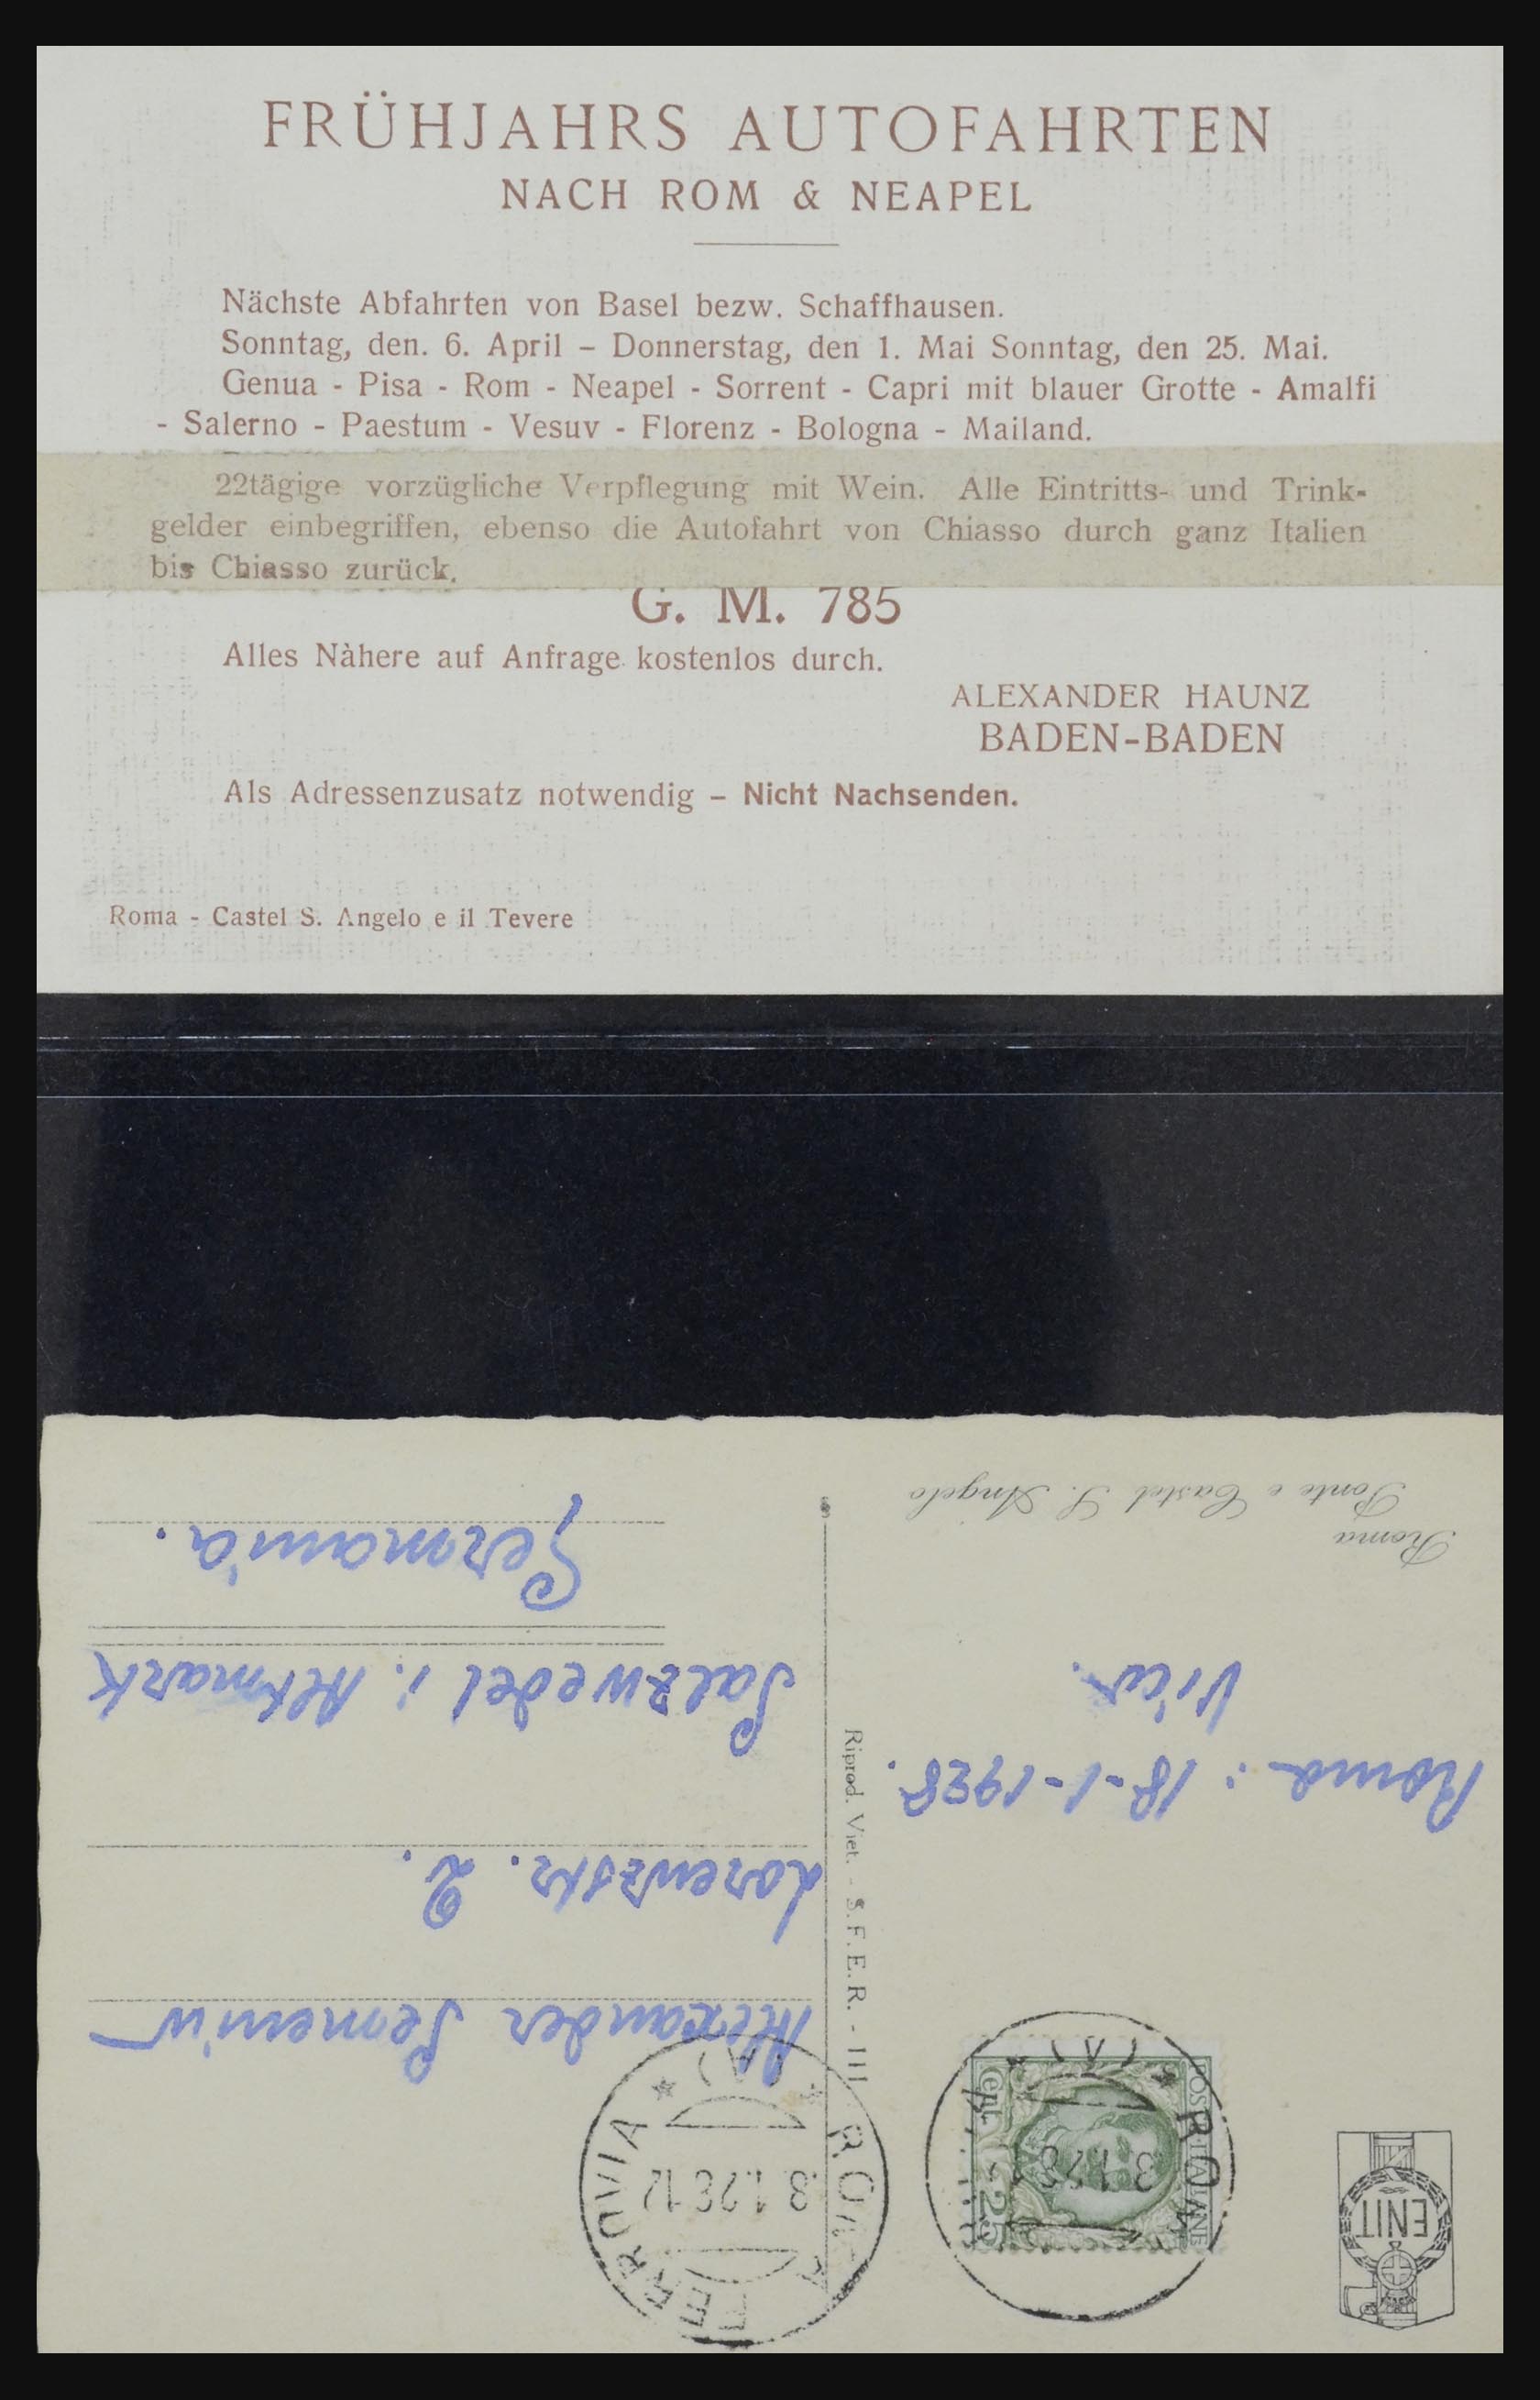 FRÜHJAHRS AUTOFAHRTEN
NACH ROM & NEAPEL
Nächste Abfahrten von Basel bezw. Schaffhausen.
Sonntag, den. 6. April – Donnerstag, den 1. Mai Sonntag, den 25. Mai.
Genua - Pisa - Rom - Neapel - Sorrent - Capri mit blauer Grotte - Amalfi
- Salerno - Paestum - Vesuv - Florenz - Bologna - Mailand.
22tägige vorzügliche Verpflegung mit Wein. Alle Eintritts- und Trink-
gelder einbegriffen, ebenso die Autofahrt von Chiasso durch ganz Italien
bis Chiasso zurück.
G. M. 785
Alles Nàhere auf Anfrage kostenlos durch.
ALEXANDER HAUNZ
BADEN-BADEN
Als Adressenzusatz notwendig – Nicht Nachsenden.
Roma - Castel S. Angelo e il Tevere
ENIT
POSTE ITALIANE
Cent. 25
ROMA FERROVIA
(A)
Roma : 18-1-1928.
Roma
Ponte e Castel S. Angelo
Riprod. Viet. - S.F.E.R. - III
Alexander
Lorenzstr. 2.
Salzwedel i. Altmark
Germania.